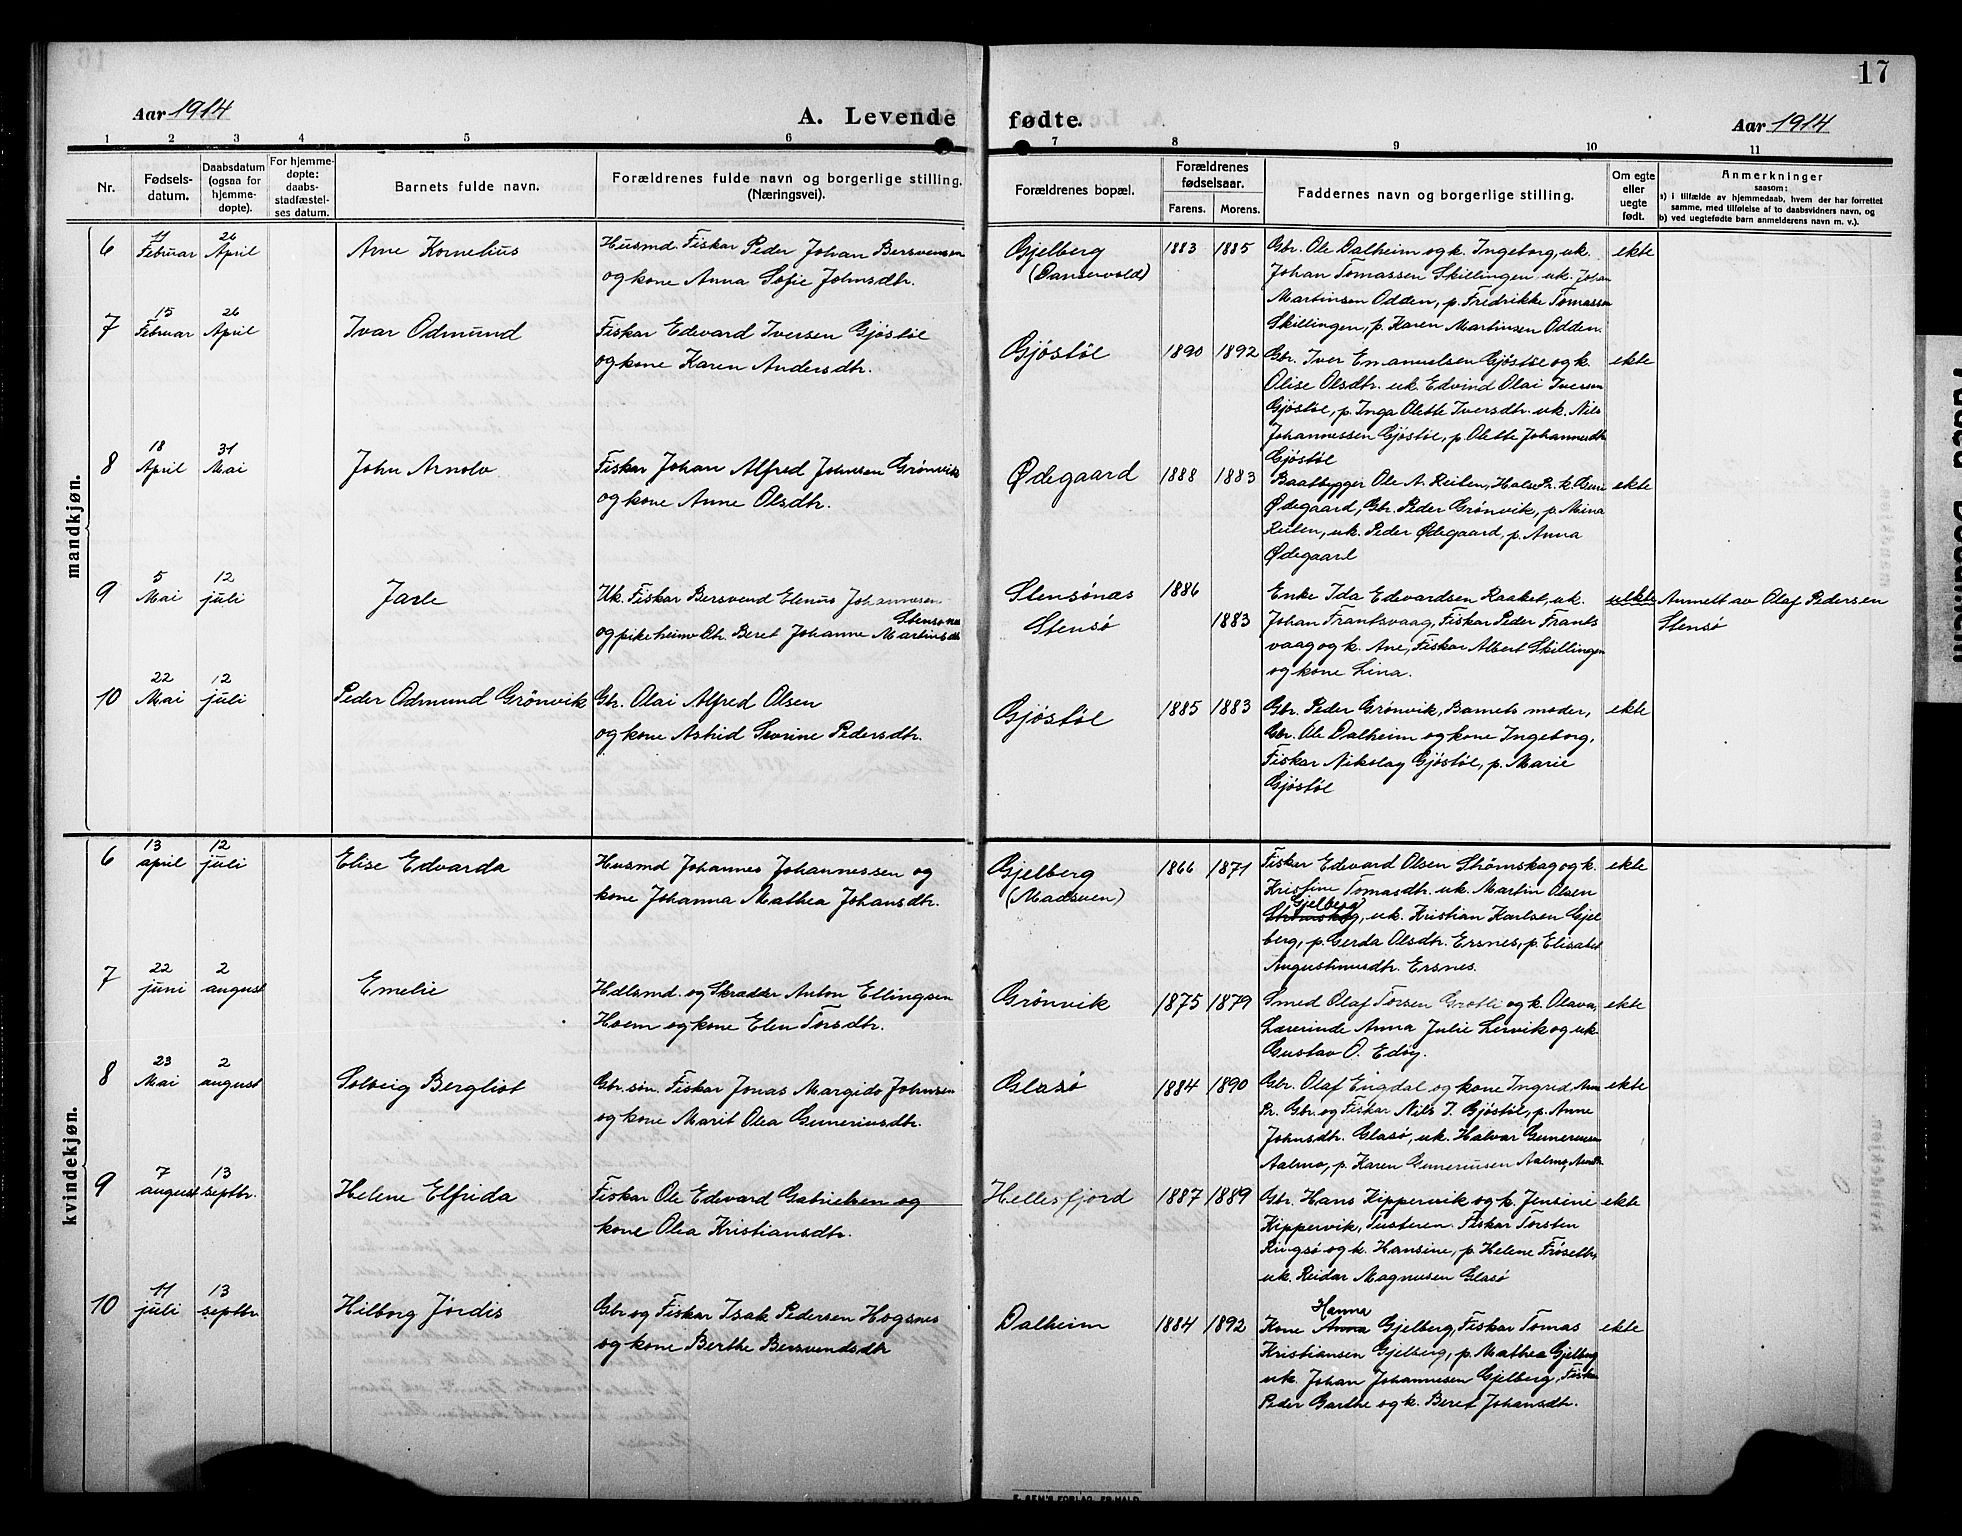 17
Aar 1914
A. Levende fødte.
Aar 1914
1 2 3 4 5 6 7 8 9 10 11
Nr.
Fødsels-
datum.
Daabsdatum
(ogsaa for
hjemme-
døpte).
For hjemme-
døpte:
daabs-
stadfæstel-
ses datum.
Barnets fulde navn.
Forældrenes fulde navn og borgerlige stilling.
(Næringsvei).
Forældrenes bopæl.
Forældrenes
fødselsaar.
Farens. Morens.
Faddernes navn og borgerlige stilling.
Om egte
eller
uegte
født.
Anmerkninger
saasom:
a) i tilfælde av hjemmedaab, hvem der har forrettet
samme, med tilføielse af to daabsvidners navn, og
b) ved uegtefødte barn anmelderens navn m. v.).
mandkjøn.
6
11 Februar
26 April
Arne Kornelius
Husmd. Fiskar Peder Johan Bersvensen
og kone Anna Sofie Johnsdtr.
Gjelberg
(Dansevold)
1883 1885
Gbr. Ole Dalheim og k. Ingeborg, uk.
Johan Tomassen Skillingen, uk. Johan
Martinsen Odden, p. Fredrikke Tomassen
Skillingen, p. Karen Martinsen Odden.
ekte
7
15 Februar
26 April
Ivar Odmund
Fiskar Edevard Iversen Gjøstøl
og kone Karen Andersdtr.
Gjøstøl
1890 1892
Gbr. Iver Emanuelsen Gjøstøl og k.
Olise Olsdtr. uk. Edvind Olai Iversen
Gjøstøl, p. Inga Olette Iversdtr. uk. Nils
Johannessen Gjøstøl, p. Olette Johannesdtr
Gjøstøl
ekte
8
18 April
31 Mai
John Arnold
Fiskar Johan Alfred Johnsen Grønvik
og kone Anne Olsdtr.
Ødegaard
1888 1883
Baatbygger Ole A. Reilen, Halse Pr. k.
Ødegaard, Gbr. Peder Grønvik, p. Mina
Reilen, uk. Peder Ødegaard, p. Anna
Ødegaard
ekte
9
5 Mai
12 juli
Jarle
Uk. Fiskar Bersvend Elenus Johannesen
Stensønes
og pike heimv. dtr. Beret Johanne Martinsdtr
Stensønæs
Stensø
1886
1883
Enke Ida Edevardsen Raaket, uk.
Johan Frantsvaag, Fiskar Peder Frants
vaag og k. Ane, Fiskar Albert Skillingen
og kone Lina.
uekte
Anmelt av Olaf Pedersen
Stensø
10
22 Mai
12 juli
Peder Odmund Grønvik
Gbr. Olai Alfred Olsen
og kone Astrid Severine Pedersdtr.
Gjøstøl
1885 1883
Gbr. Peder Grønvik, Barnets moder,
Gbr. Ole Dalheim og kone Ingeborg,
Fiskar Nikolay Gjøstøl, p. Marie
Gjøstøl
ekte
kvindekjøn.
6
13 april
12 juli
Elise Edvarda
Husmd Johannes Johannessen og
kone Johanna Mathea Johansdtr.
Gjelberg
(Madsven)
1866 1871
Fiskar Edevard Olsen Strømskag og k.
Kristine Tomasdtr. uk. Martin Olsen
Gjelberg
Strømskag, uk. Kristian Karlsen Gjel
berg, p. Gerda Olsdtr. Ersnes, p. Elisabet
Augustinusdtr. Ersnes.
ekte
7
22 juni
2 august
Emelie
Hdlsmd. og Skrædder Anton Ellingsen
Hoem og kone Elen Torsdtr.
Grønvik
1875 1879
Smed Olaf Torsen Grøtli og k. Olava,
Lærerinde Anna Julie Lervik og uk.
Gustav O. Edøy.
ekte
8
23 Mai
2 august
Solveig Bergliot
Gbr. søn. Fiskar Jonas Margido Johnsen
og kone Marit Olea Gunneriusdtr.
Glasø
1884 1890
Gbr. Olaf Engdal og kone Ingrid
Pr. Gbr. og Fiskar Nils J. Gjøstøl, p. Anne
Johnsdtr. Glasø, uk. Halvar Gunnerusen
Aalmo, p. Karen Gunneriusen Aalmo,
ekte
9
7 august
13 septbr.
Helene Elfrida
Fiskar Ole Edevard Gabrielsen og
kone Olea Kristiansdtr.
Hellesfjord
1887 1889
Gbr. Hans Kippervik og k. Jensine
Kippervik, Tusteren. Fiskar Torsten
Ringsø og k. Hansine, p. Helene Frøseth,
uk. Reidar Magnusen Glasø
ekte
10
11 juli
13 septbr
Hilborg Jørdis
Gbr og Fiskar Isak Pedersen Hogsnes
og kone Berthe Bersvendsdtr
Dalheim
1884 1892
Hanna
Kone Anna Gjelberg, Fiskar Tomas
Kristiansen Gjelberg, p. Mathea Gjelberg
uk. Johan Johannesen Gjelberg, Fiskar
Peder Garthe og k. Beret Johansdtr.
ekte